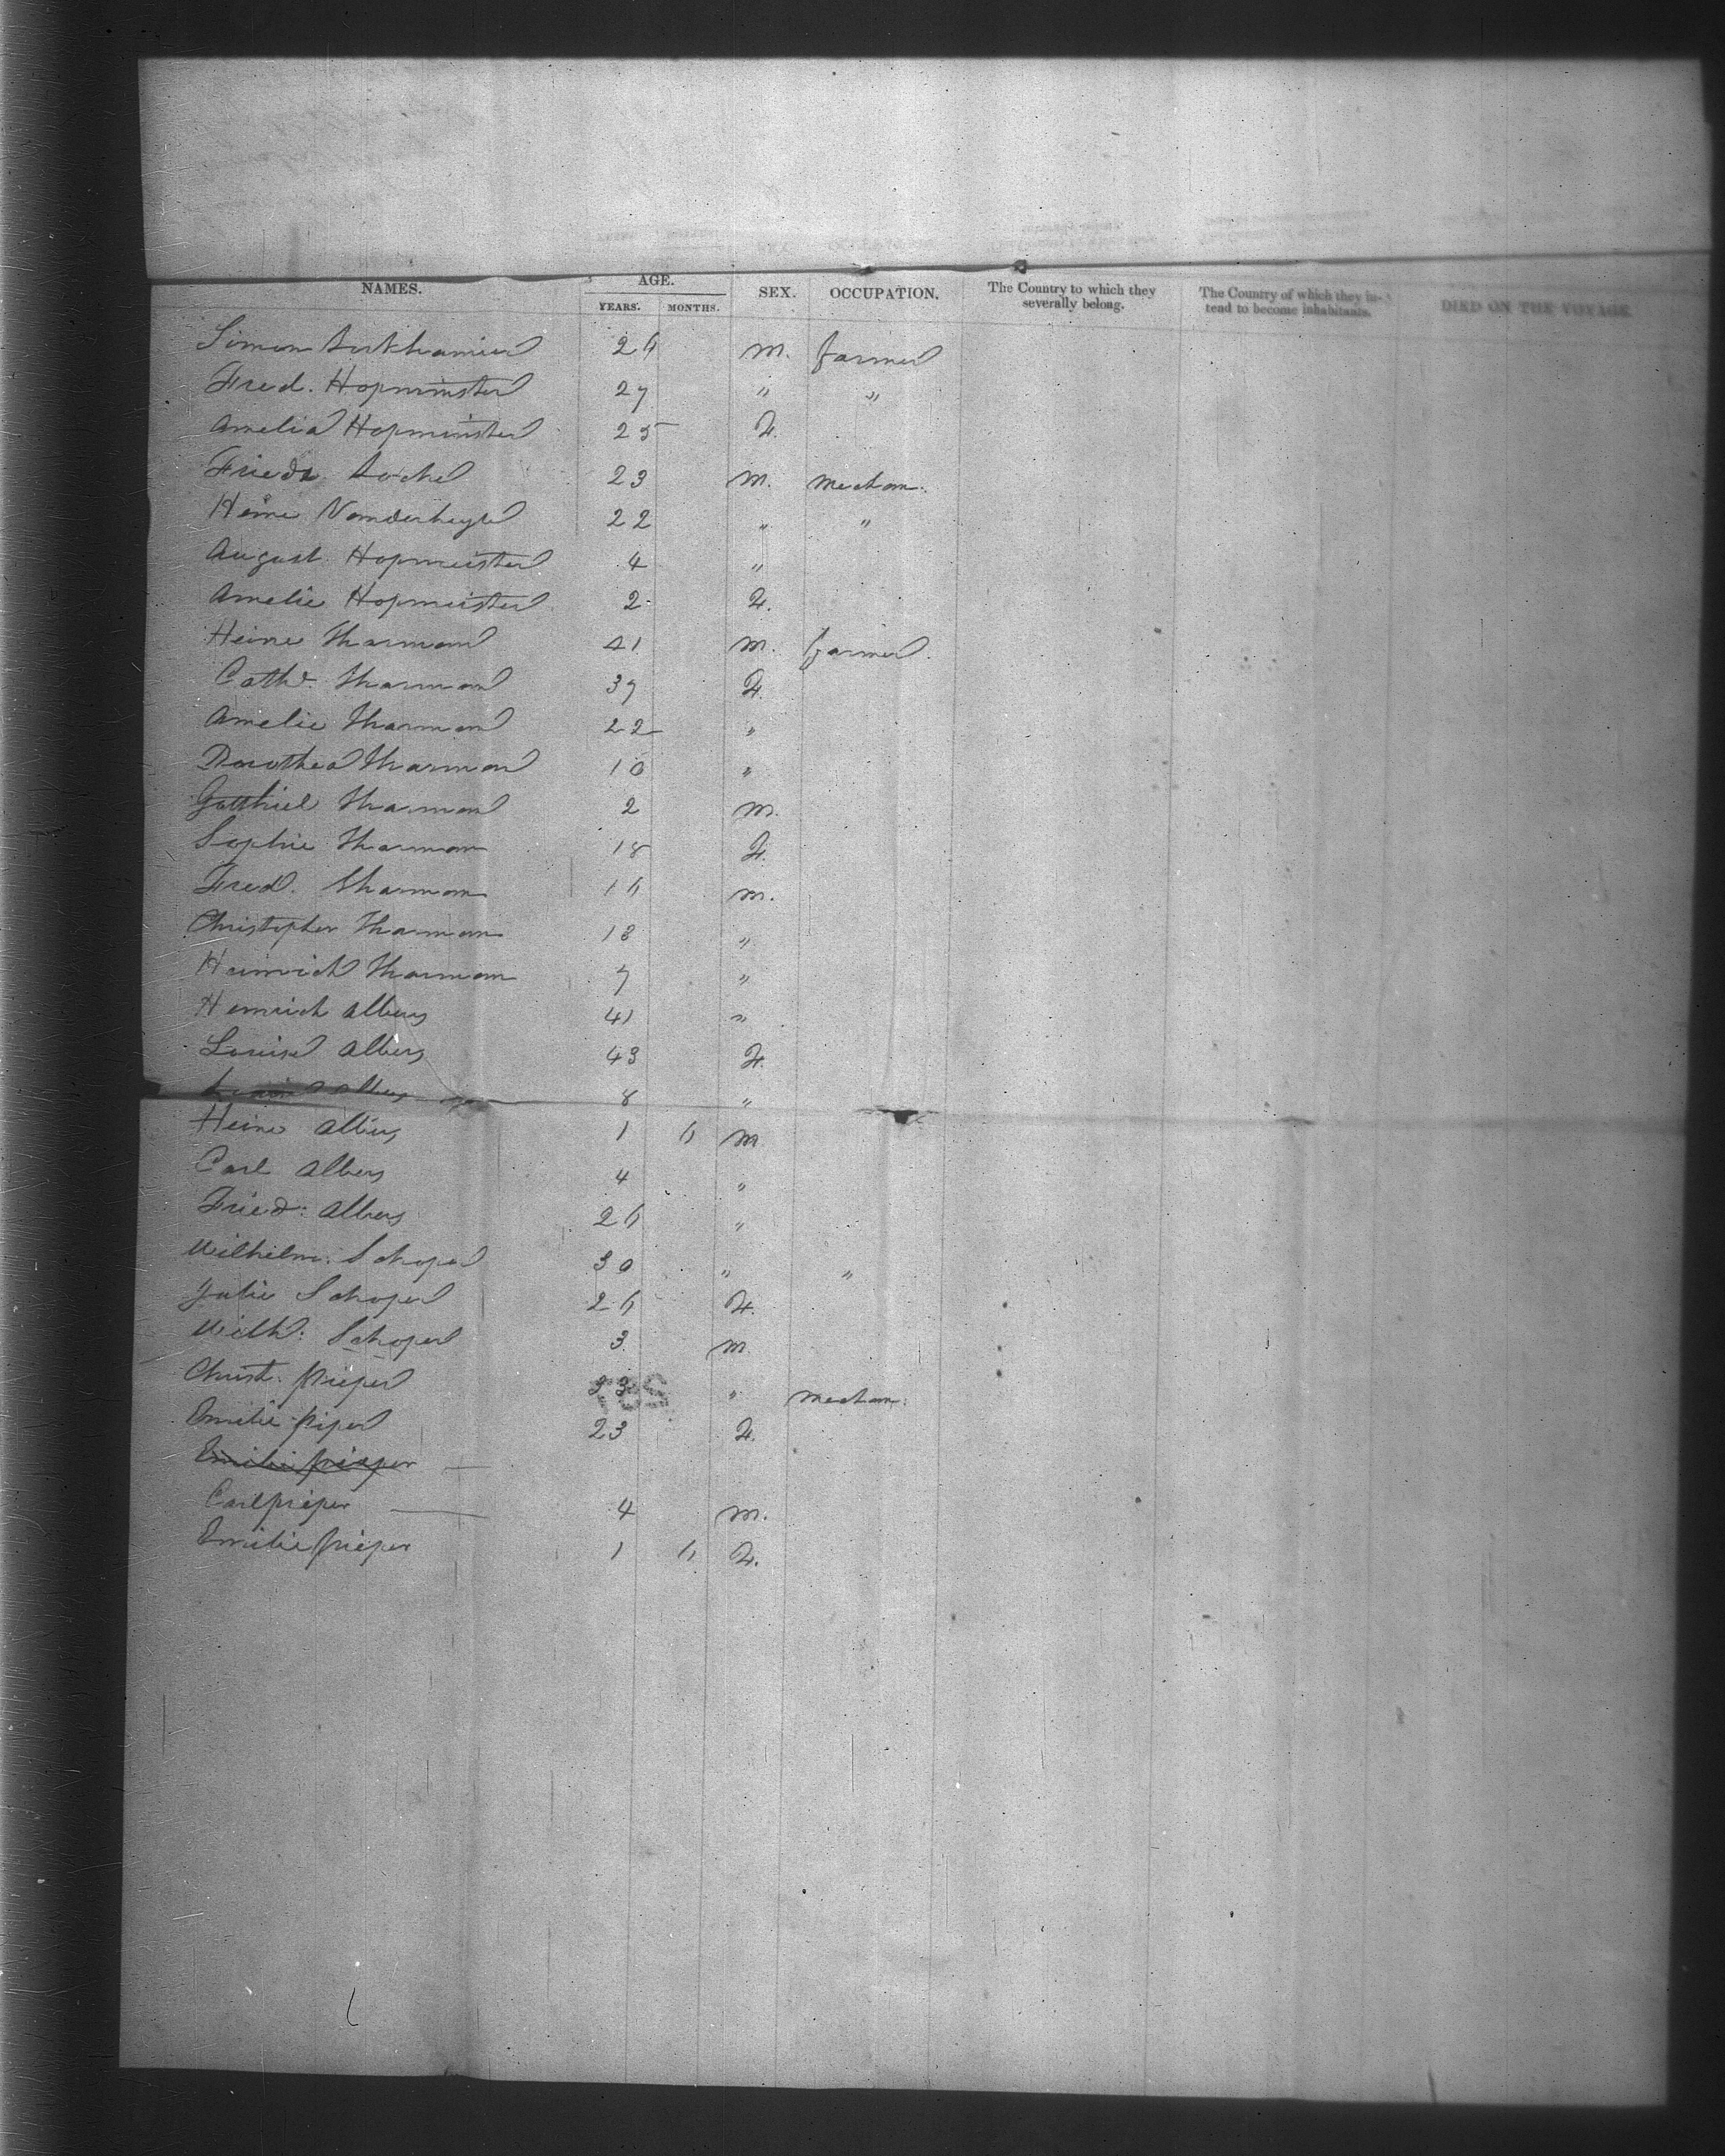 NAMES. AGE. SEX. OCCUPATION. The Country to which they severally belong. The Country of which they intend to become inhabitants. DIED ON THE VOYAGE.
YEARS. MONTHS.
Simon 26 M. farmer
Fred. Hopmeister 27 " "
Amelia Hopmeister 25 F.
Friedr. 23 M. Mechan.
Heinr Vanderheyde 22 " "
August Hopmeister 4 "
Amelie Hopmeister 2 F.
Heinr Tharmann 41 M. farmer.
Cath. Tharmann 37 F.
Amelie Tharmann 22 "
Dorothea Tharmann 10 "
Gotthiel Tharmann 2 M.
Sophie Tharmann 18 F.
Fred. Tharmann 16 M.
Christopher Tharmann 13 "
Heinrich Tharmann 7 "
Heinrich Albers 41 "
Louise Albers 43 F.
Louise Albers 8 "
Heinr Albers 1 6 M
Carl Albers 4 "
Fried: Albers 26 "
Wilhelm: Schoper 30 " "
Julie Schoper 26 F.
Wilh: Schoper 3 M
Christ. Pieper 33 " Mechan:
Emilie Piper 23 F.
Emilie Pieper
Carl Pieper 4 M.
Emilie Pieper 1 6 F.